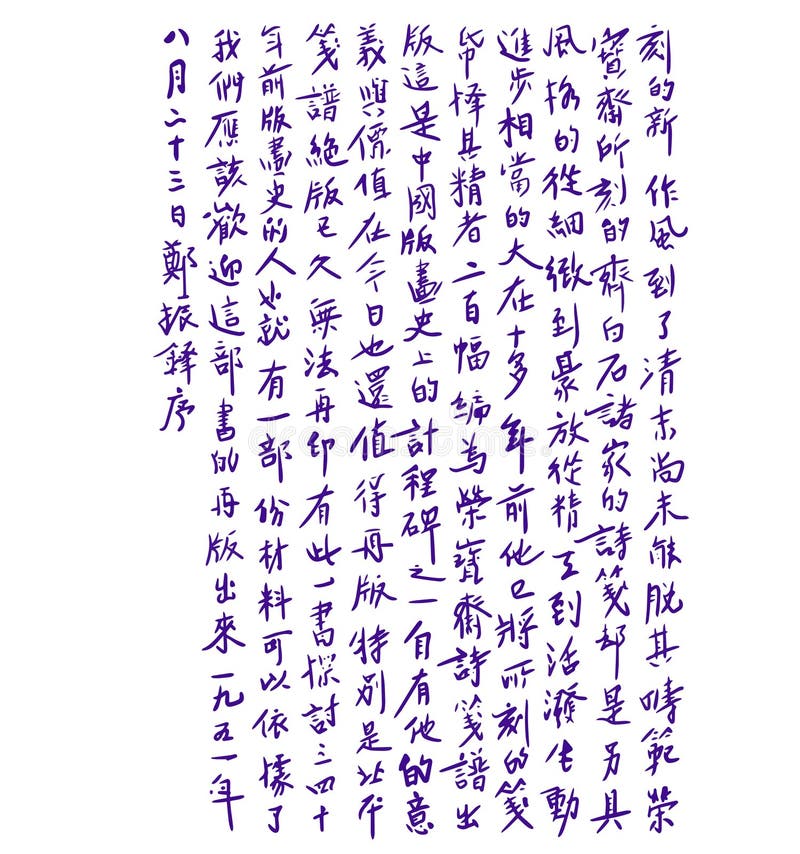 刻的新作風到了清末尚未能脫其疇範榮
寶齋所刻的齊白石諸家的詩箋却是另具
風格的從細緻到豪放從精工到活潑生動
進步相當的大在十多年前他已將所刻的箋
帋擇其精者二百幅編為榮寶齋詩箋譜出
版這是中國版畫史上的計程碑之一自有他的意
義與價值在今日也還值得再版特別是北平
箋譜絕版已久無法再印有此一書探討三四十
年前版畫史的人也就有一部份材料可以依據了
我們應該歡迎這部書的再版出來一九五一年
八月二十三日鄭振鐸序